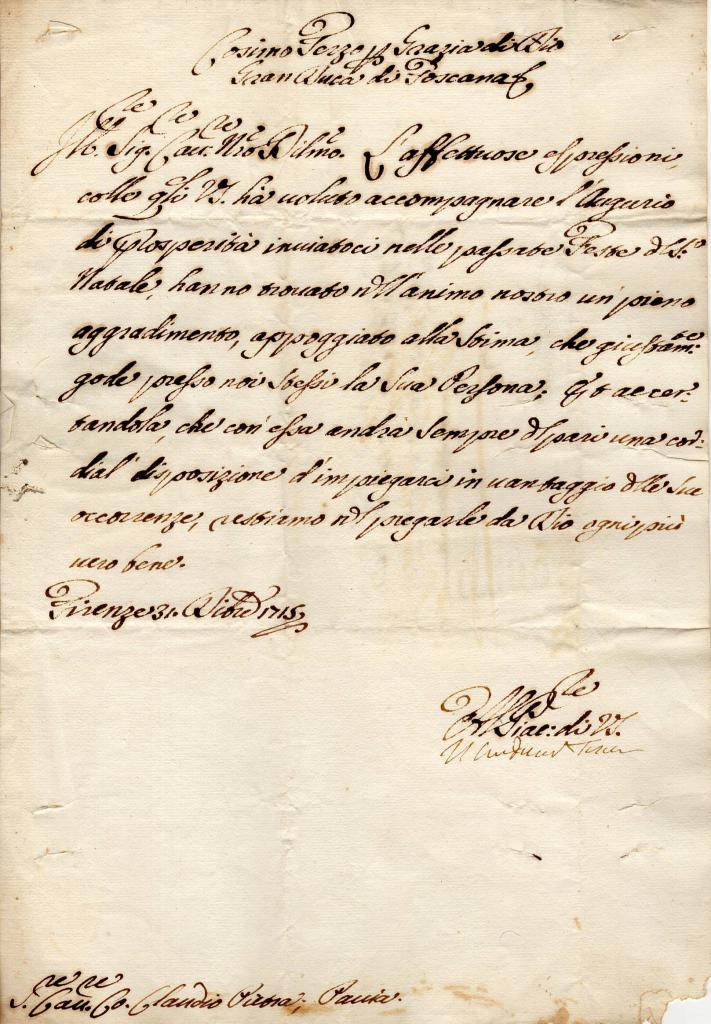 Cosimo Terzo p Grazia di Dio
Gran Duca di Toscana
Ill.re Sig.re Cav.re Nro Dilmo. L'affettuose espressioni,
colle qli VS. hà voluto accompagnare l'Augurio
di prosperità inviatoci nelle passate Feste d S.to
Natale, hanno trovato nll'animo nostro un' pieno
aggradimento, appoggiato alla stima, che giustam.te
gode presso noi stessi la sua Persona; Et accer-
tandola, che con' essa andrà sempre d pari una cor-
dial' disposizione d'impiegarci in vantaggio dlle sue
occorrenze, restiamo nl pregarle da Dio ogni più
vero bene.
Firenze 31. Xbre 1715
Piac: di VS.
S.re Cav.re Co. Claudio Pietra, Pavia.